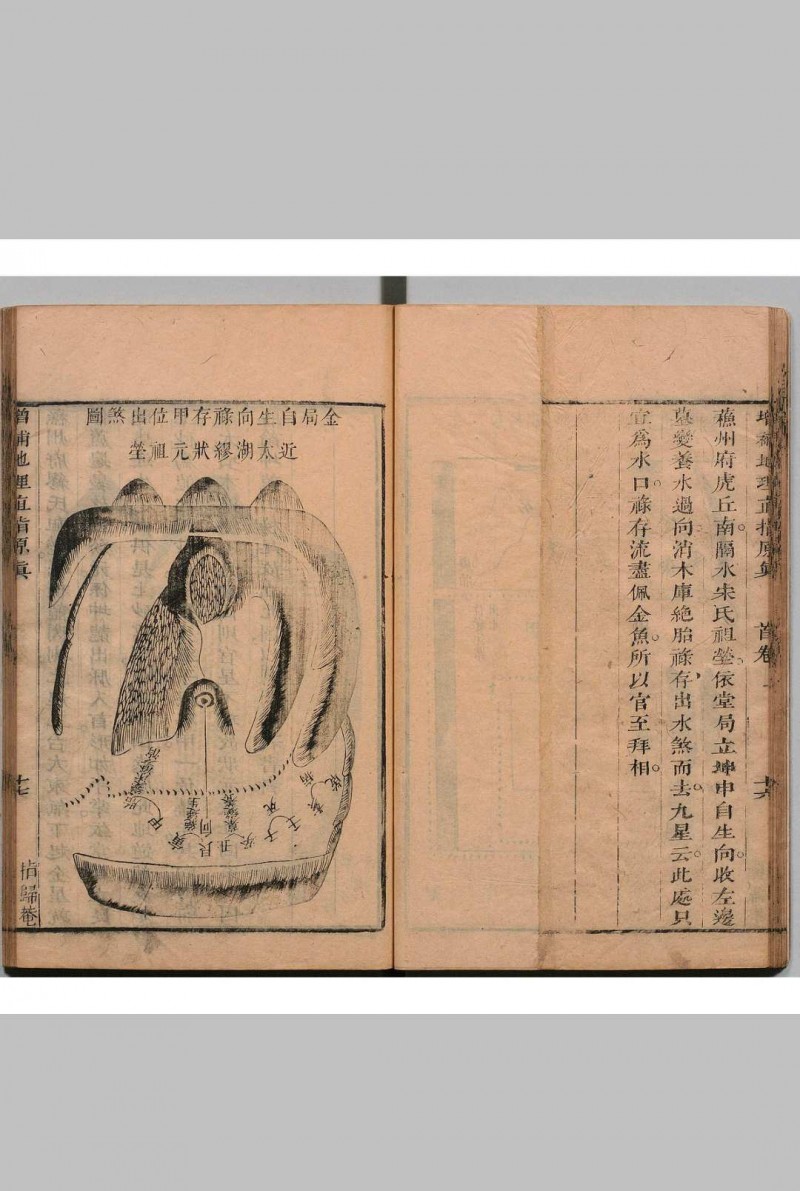 增補地理直指原真 首卷
十六
蘓州府虎丘南隔水朱氏祖塋依堂局立坤申自生向收左邊
墓變養水過向消木庫絶胎祿存出水煞而去九星云此處只
宜爲水口祿存流盡佩金魚所以官至拜相
金局自生向祿存甲位出煞圖
近太湖繆狀元祖塋
向
艮
丑
增補地理直指原真
十七
指歸菴